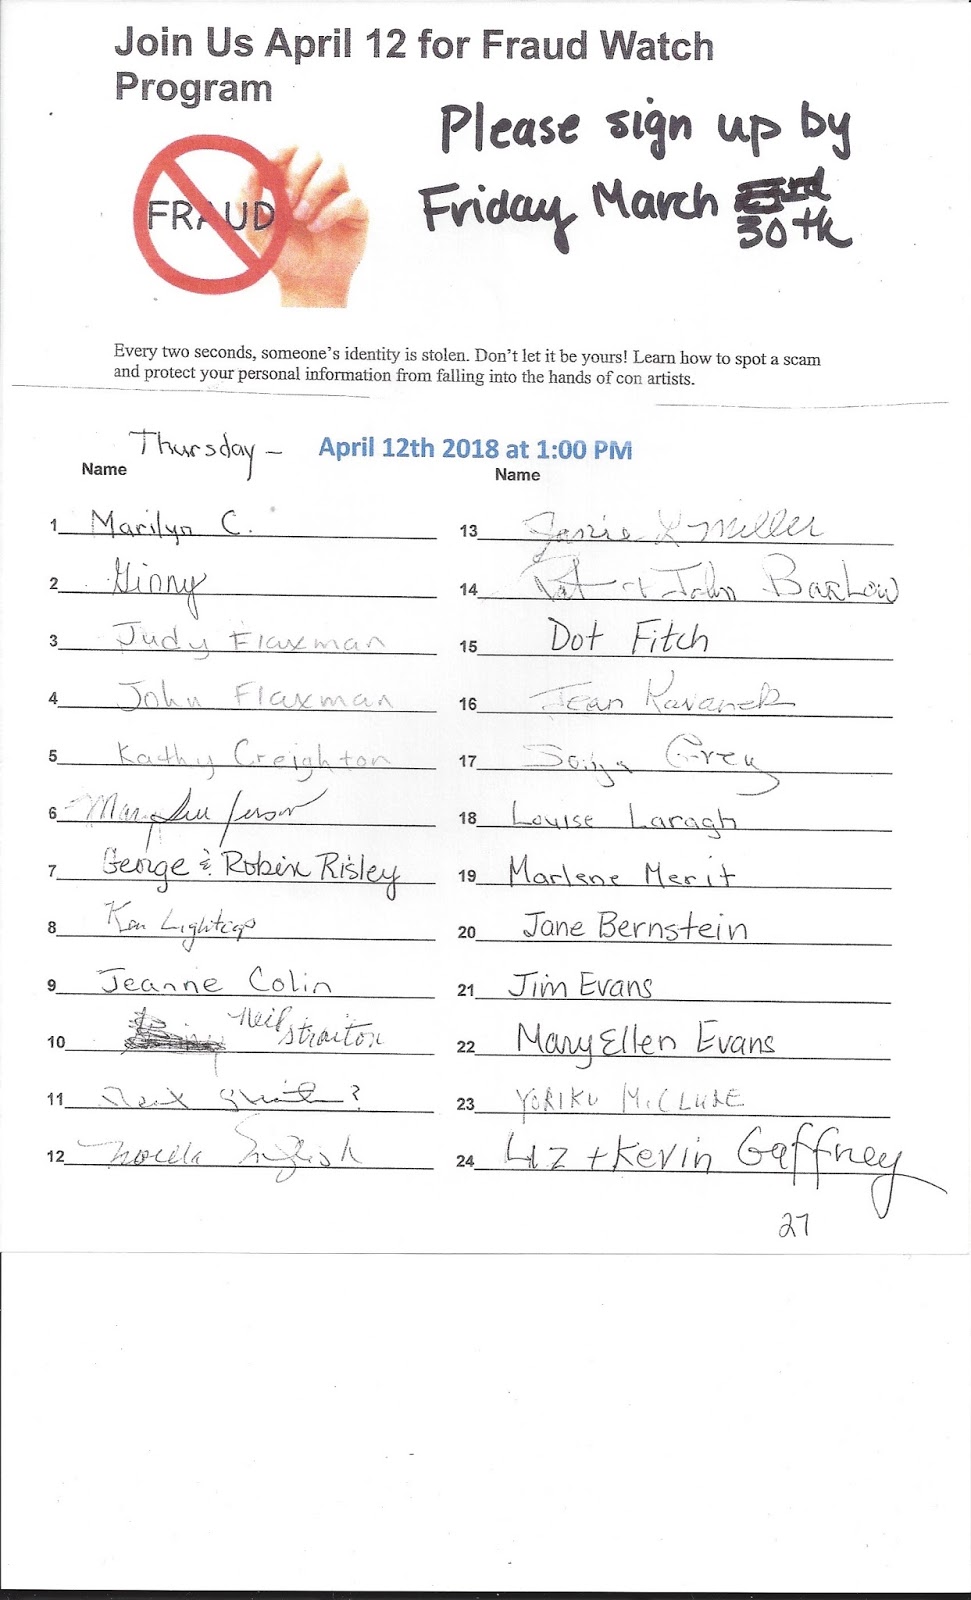 Join Us April 12 for Fraud Watch
Program
Please sign up by
Friday March
30th
FRAUD
Every two seconds, someone's identity is stolen. Don't let it be yours! Learn how to spot a scam
and protect your personal information from falling into the hands of con artists.
Thursday – April 12th 2018 at 1:00 PM
Name Name
1 Marilyn C.
2 Ginny
3 Judy Flaxman
4 John Flaxman
5 Kathy Creighton
6 Mary
7 George & Robin Risley
8 Ken
9 Jeanne Colin
10 Neil Straiton
11
12 English
13 Janie L Miller
14 Pat + John Barlow
15 Dot Fitch
16 Jean Kavanek
17 Sonja Grey
18 Louise Laragh
19 Marlene Merit
20 Jane Bernstein
21 Jim Evans
22 Mary Ellen Evans
23 YORIKU McCLURE
24 Liz + Kevin Gaffney
27